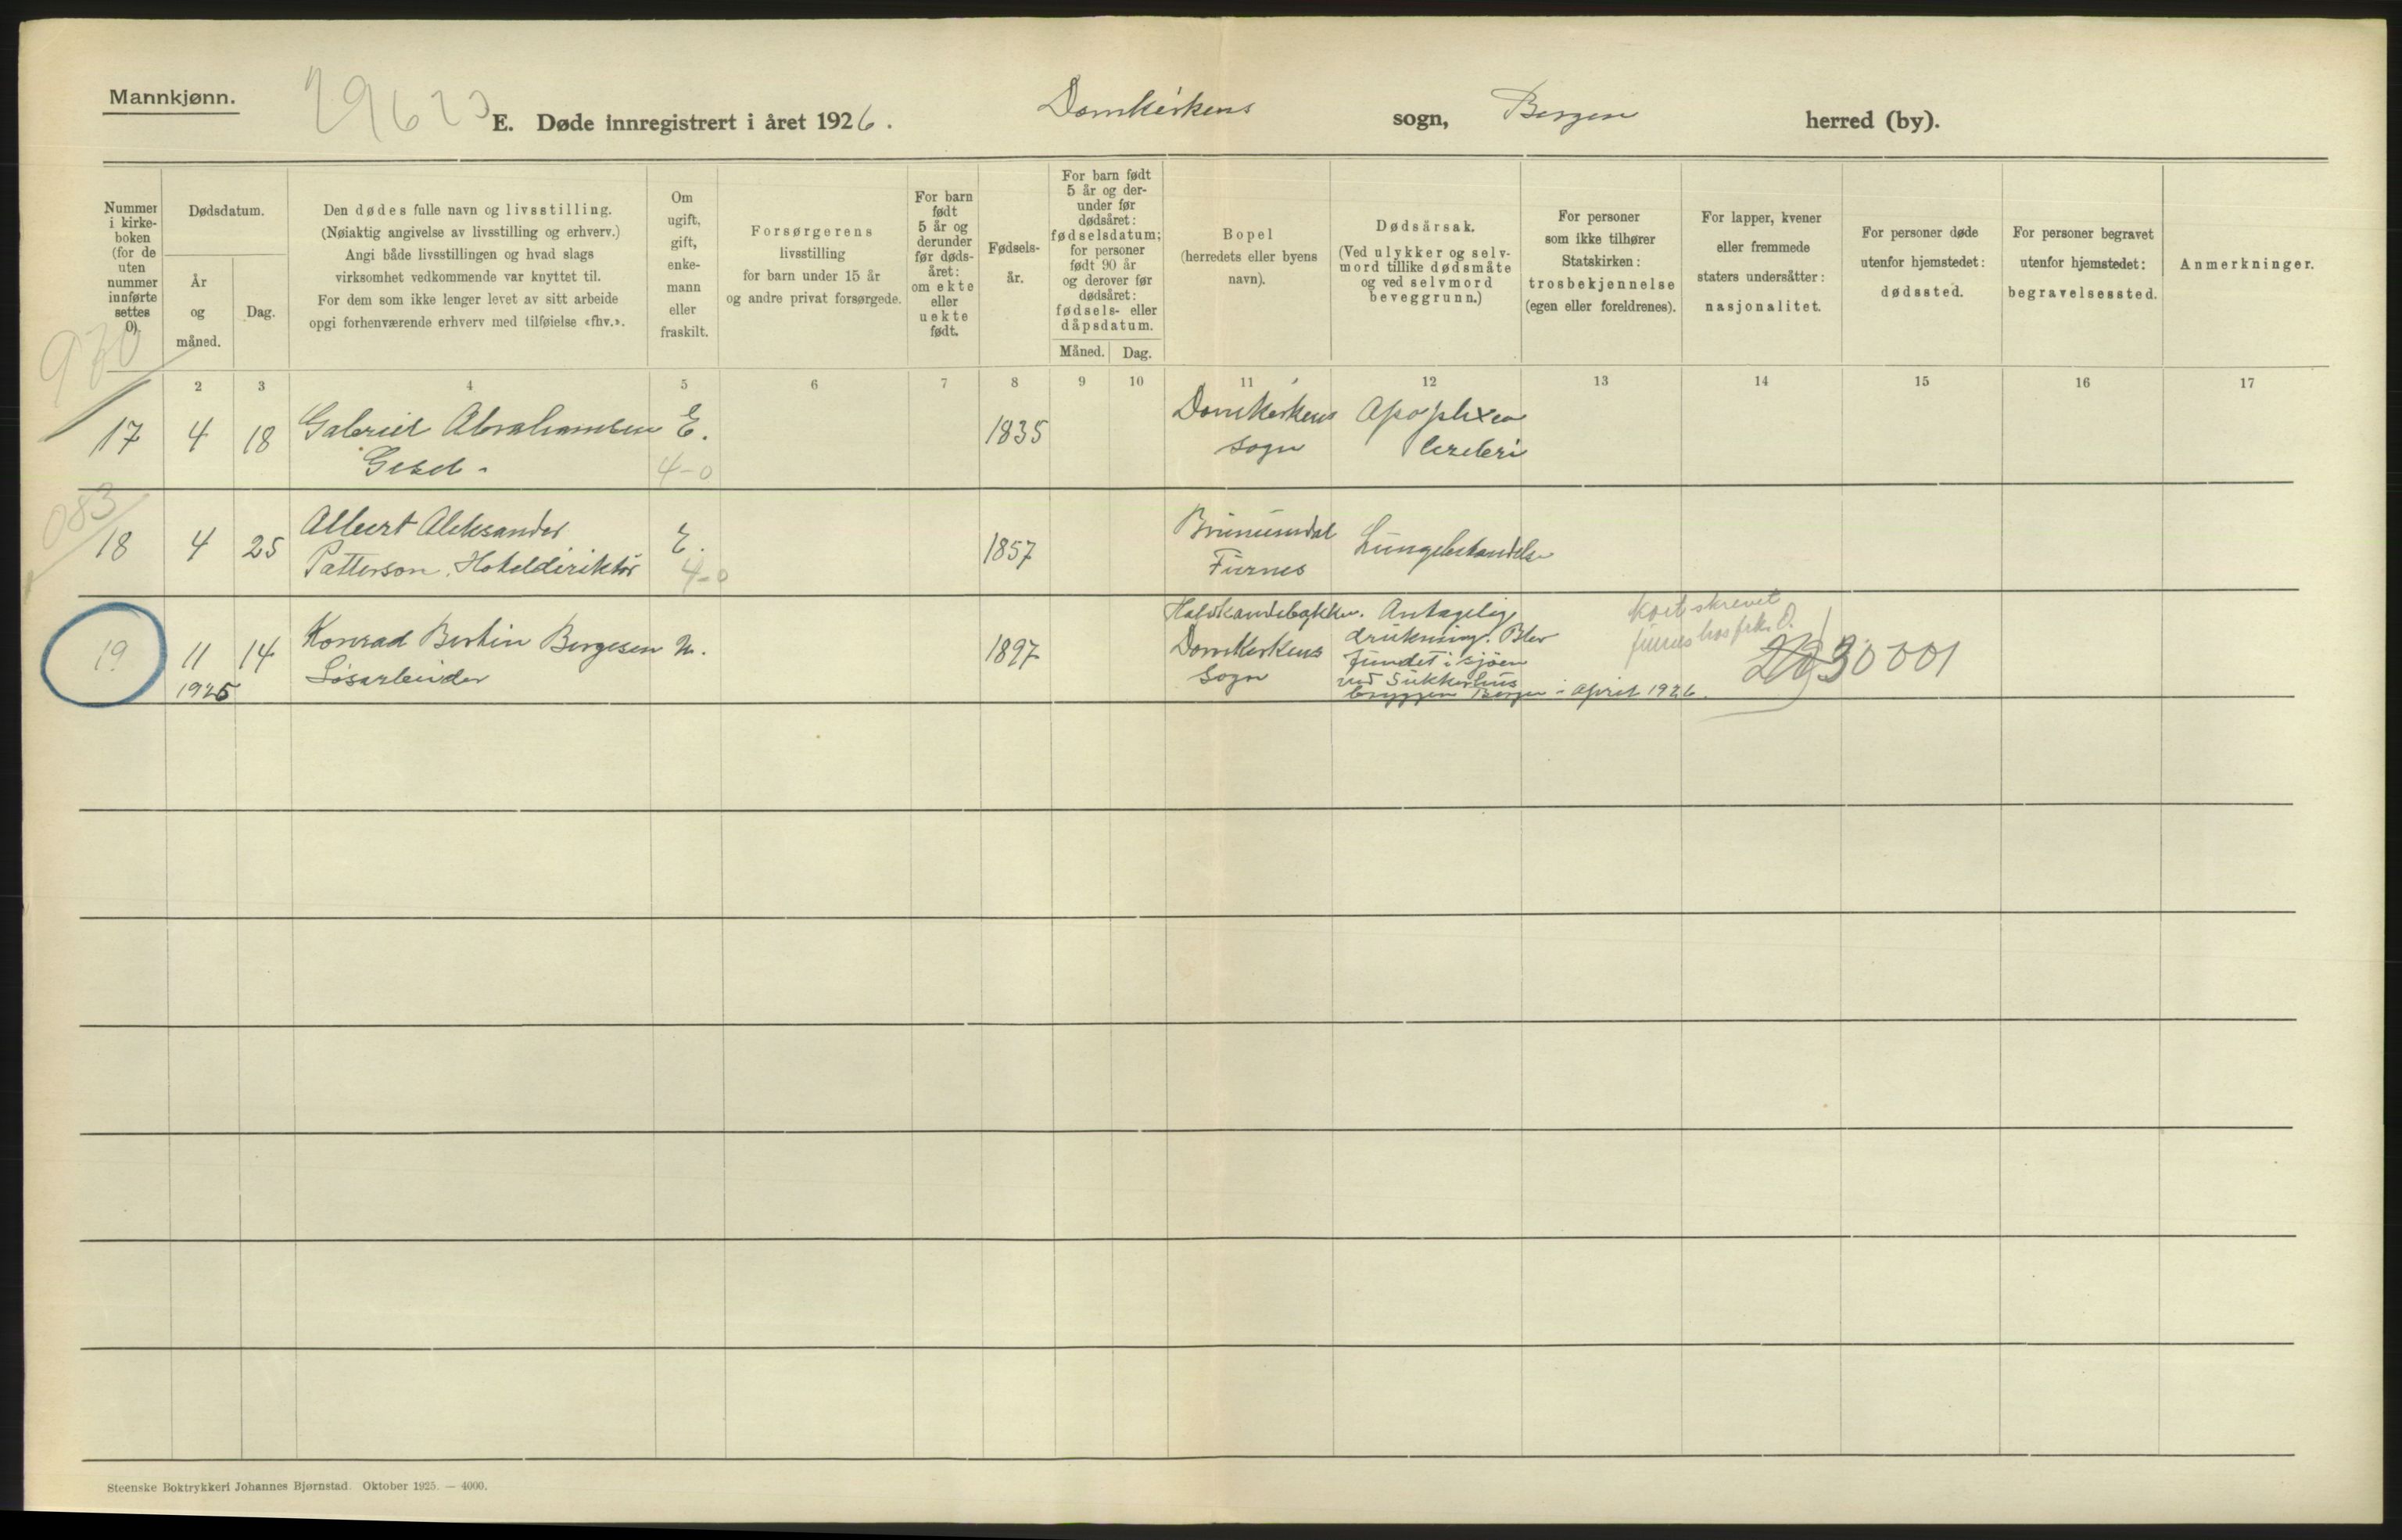 Mannkjønn.
E. Døde innregistrert i året 1926. Domkirkens sogn, Bergen herred (by).
Nummer i kirke-boken (for de uten nummer innførte settes 0).
Dødsdatum.
År og måned.
Dag.
Den dødes fulle navn og livsstilling.
(Nøiaktig angivelse av livsstilling og erhverv.)
Angi både livsstillingen og hvad slags
virksomhet vedkommende var knyttet til.
For dem som ikke lenger levet av sitt arbeide
opgi forhenværende erhverv med tilføielse «fhv.».
Om ugift, gift, enke-mann eller fraskilt.
Forsørgerens
livsstilling
for barn under 15 år
og andre privat forsørgede.
For barn født 5 år og derunder før døds-året: om ekte eller uekte født.
Fødsels-år.
For barn født 5 år og der-under før dødsåret: fødselsdatum; for personer født 90 år og derover før dødsåret: fødsels- eller dåpsdatum.
Måned. Dag.
Bopel
(herredets eller byens navn).
Dødsårsak.
(Ved ulykker og selv-mord tillike dødsmåte og ved selvmord beveggrunn.)
For personer som ikke tilhører Statskirken: trosbekjennelse (egen eller foreldrenes).
For lapper, kvener eller fremmede staters undersåtter: nasjonalitet.
For personer døde utenfor hjemstedet: dødssted.
For personer begravet utenfor hjemstedet: begravelsessted.
Anmerkninger.
2 3 4 5 6 7 8 9 10 11 12 13 14 15 16 17
17 4 18 Gabriel Abrahamsen E. 1835 Domkirkens Apoplexia
4-0 sogn cerebri
18 4 25 Albert Aleksander E. 1857 Brumunddal
Patterson. Hoteldirektør 4-0 Furnes
19 11 14 Konrad Bertin Børgesen U. 1897 Halvkandebakken. Antagelig
1925 Løsarbeider Domkirkens drukning. Blev
sogn fundet i sjøen
ved Sukkerhus
bryggen Bergen i april 1926.
kort skrevet
30001
Steenske Boktrykkeri Johannes Bjørnstad. Oktober 1925. — 4000.